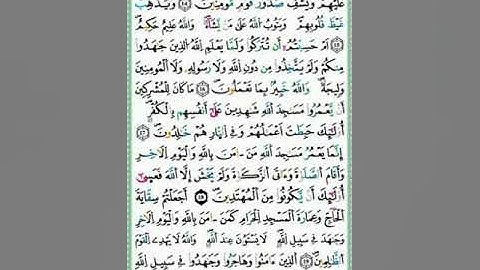 عَلَيْهِمْ وَيَشْفِ صُدُورَ قَوْمٍ مُّؤْمِنِينَ ١٤ وَيُذْهِبْ
غَيْظَ قُلُوبِهِمْ وَيَتُوبُ اللَّهُ عَلَىٰ مَن يَشَاءُ وَاللَّهُ عَلِيمٌ حَكِيمٌ ١٥
أَمْ حَسِبْتُمْ أَن تُتْرَكُوا وَلَمَّا يَعْلَمِ اللَّهُ الَّذِينَ جَٰهَدُوا
مِنكُمْ وَلَمْ يَتَّخِذُوا مِن دُونِ اللَّهِ وَلَا رَسُولِهِ وَلَا الْمُؤْمِنِينَ
وَلِيجَةً وَاللَّهُ خَبِيرٌ بِمَا تَعْمَلُونَ ١٦ مَا كَانَ لِلْمُشْرِكِينَ
أَن يَعْمُرُوا مَسَٰجِدَ اللَّهِ شَٰهِدِينَ عَلَىٰ أَنفُسِهِم بِالْكُفْرِ
أُولَٰئِكَ حَبِطَتْ أَعْمَٰلُهُمْ وَفِي النَّارِ هُمْ خَٰلِدُونَ ١٧
إِنَّمَا يَعْمُرُ مَسَٰجِدَ اللَّهِ مَنْ ءَامَنَ بِاللَّهِ وَالْيَوْمِ الْءَاخِرِ
وَأَقَامَ الصَّلَوٰةَ وَءَاتَى الزَّكَوٰةَ وَلَمْ يَخْشَ إِلَّا اللَّهَ فَعَسَىٰ
أُولَٰئِكَ أَن يَكُونُوا مِنَ الْمُهْتَدِينَ ١٨ أَجَعَلْتُمْ سِقَايَةَ
الْحَاجِّ وَعِمَارَةَ الْمَسْجِدِ الْحَرَامِ كَمَنْ ءَامَنَ بِاللَّهِ وَالْيَوْمِ الْءَاخِرِ
وَجَٰهَدَ فِي سَبِيلِ اللَّهِ لَا يَسْتَوُونَ عِندَ اللَّهِ وَاللَّهُ لَا يَهْدِي الْقَوْمَ
الظَّٰلِمِينَ ١٩ الَّذِينَ ءَامَنُوا وَهَاجَرُوا وَجَٰهَدُوا فِي سَبِيلِ اللَّهِ